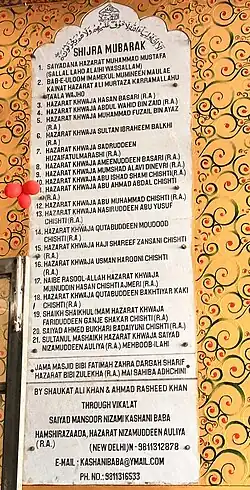 SHIJRA MUBARAK
1. SAIYADANA HAZARAT MUHAMMAD MUSTAFA
(SALLAL LAHO ALAIH WASSALLAM)
2. BAB-E-ULOOM IMAMEKUL MUMINEEN MAULAE
KAINAT HAZARAT ALI MURTAZA KARRAMALLAHU
TAALA WAJHO
3. HAZARAT KHWAJA HASAN BASARI (R.A.)
4. HAZARAT KHWAJA ABDUL WAHID BIN ZAID (R.A.)
5. HAZARAT KHWAJA MUHAMMAD FUZAIL BIN AYAZ
(R.A.)
6. HAZARAT KHWAJA SULTAN IBRAHEEM BALKHI
(R.A.)
7. HAZARAT KHWAJA SADRUDDEEN
HUZAIFATULMARASHI (R.A.)
8. HAZARAT KHWAJA AMEENUDDEEN BASARI (R.A.)
9. HAZARAT KHWAJA MUMSHAD ALAVI DINEVRI (R.A.)
10. HAZARAT KHWAJA ABU ISHAD SHAMI CHISHTI(R.A.)
11. HAZARAT KHWAJA ABU AHMAD ABDAL CHISHTI
(R.A.)
12. HAZARAT KHWAJA ABU MUHAMMAD CHISHTI (R.A.)
13. HAZARAT KHWAJA NASIRUDDEEN ABU YUSUF
CHISHTI(R.A.)
14. HAZARAT KHWAJA QUTABUDDEEN MOUDOOD
CHISHTI(R.A.)
15. HAZARAT KHWAJA HAJI SHAREEF ZANSANI CHISHTI
(R.A.)
16. HAZARAT KHWAJA USMAN HAROONI CHISHTI
(R.A.)
17. NAIBE RASOOL-ALLAH HAZARAT KHWAJA
MUINUDDIN HASAN CHISHTI AJMERI (R.A.)
18. HAZARAT KHWAJA QUTABUDDEEN BAKHTIYAR KAKI
CHISHTI (R.A.)
19. SHAIKH SHAIKHUL IMAM HAZARAT KHWAJA
FARIDUDDEEN GANJE SHAKAR CHISHTI (R.A.)
20. SAIYED AHMED BUKHARI BADAIYUNI CHISHTI(R.A.)
21. SULTANUL MASHAIKH HAZARAT KHWAJA SAIYAD
NIZAMUDDEEN AULIYA (R.A.) MEHBOOB-ILAHI
JAMA MASJID BIBI FATIMAH ZAHRA DARGAH SHARIF
HAZARAT BIBI ZULEKHA (R.A.) MAI SAHIBA ADHCHINI
BY SHAUKAT ALI KHAN & AHMAD RASHEED KHAN
THROUGH VIKALAT
SAIYAD MANSOOR NIZAMI KASHANI BABA
HAMSHIRAZAADA, HAZARAT NIZAMUDDEEN AULIYA
(R.A.) (NEW DELHI)M - 9811312878
E-MAIL : KASHANIBABA@YMAIL.COM
PH. NO.: 9811316533